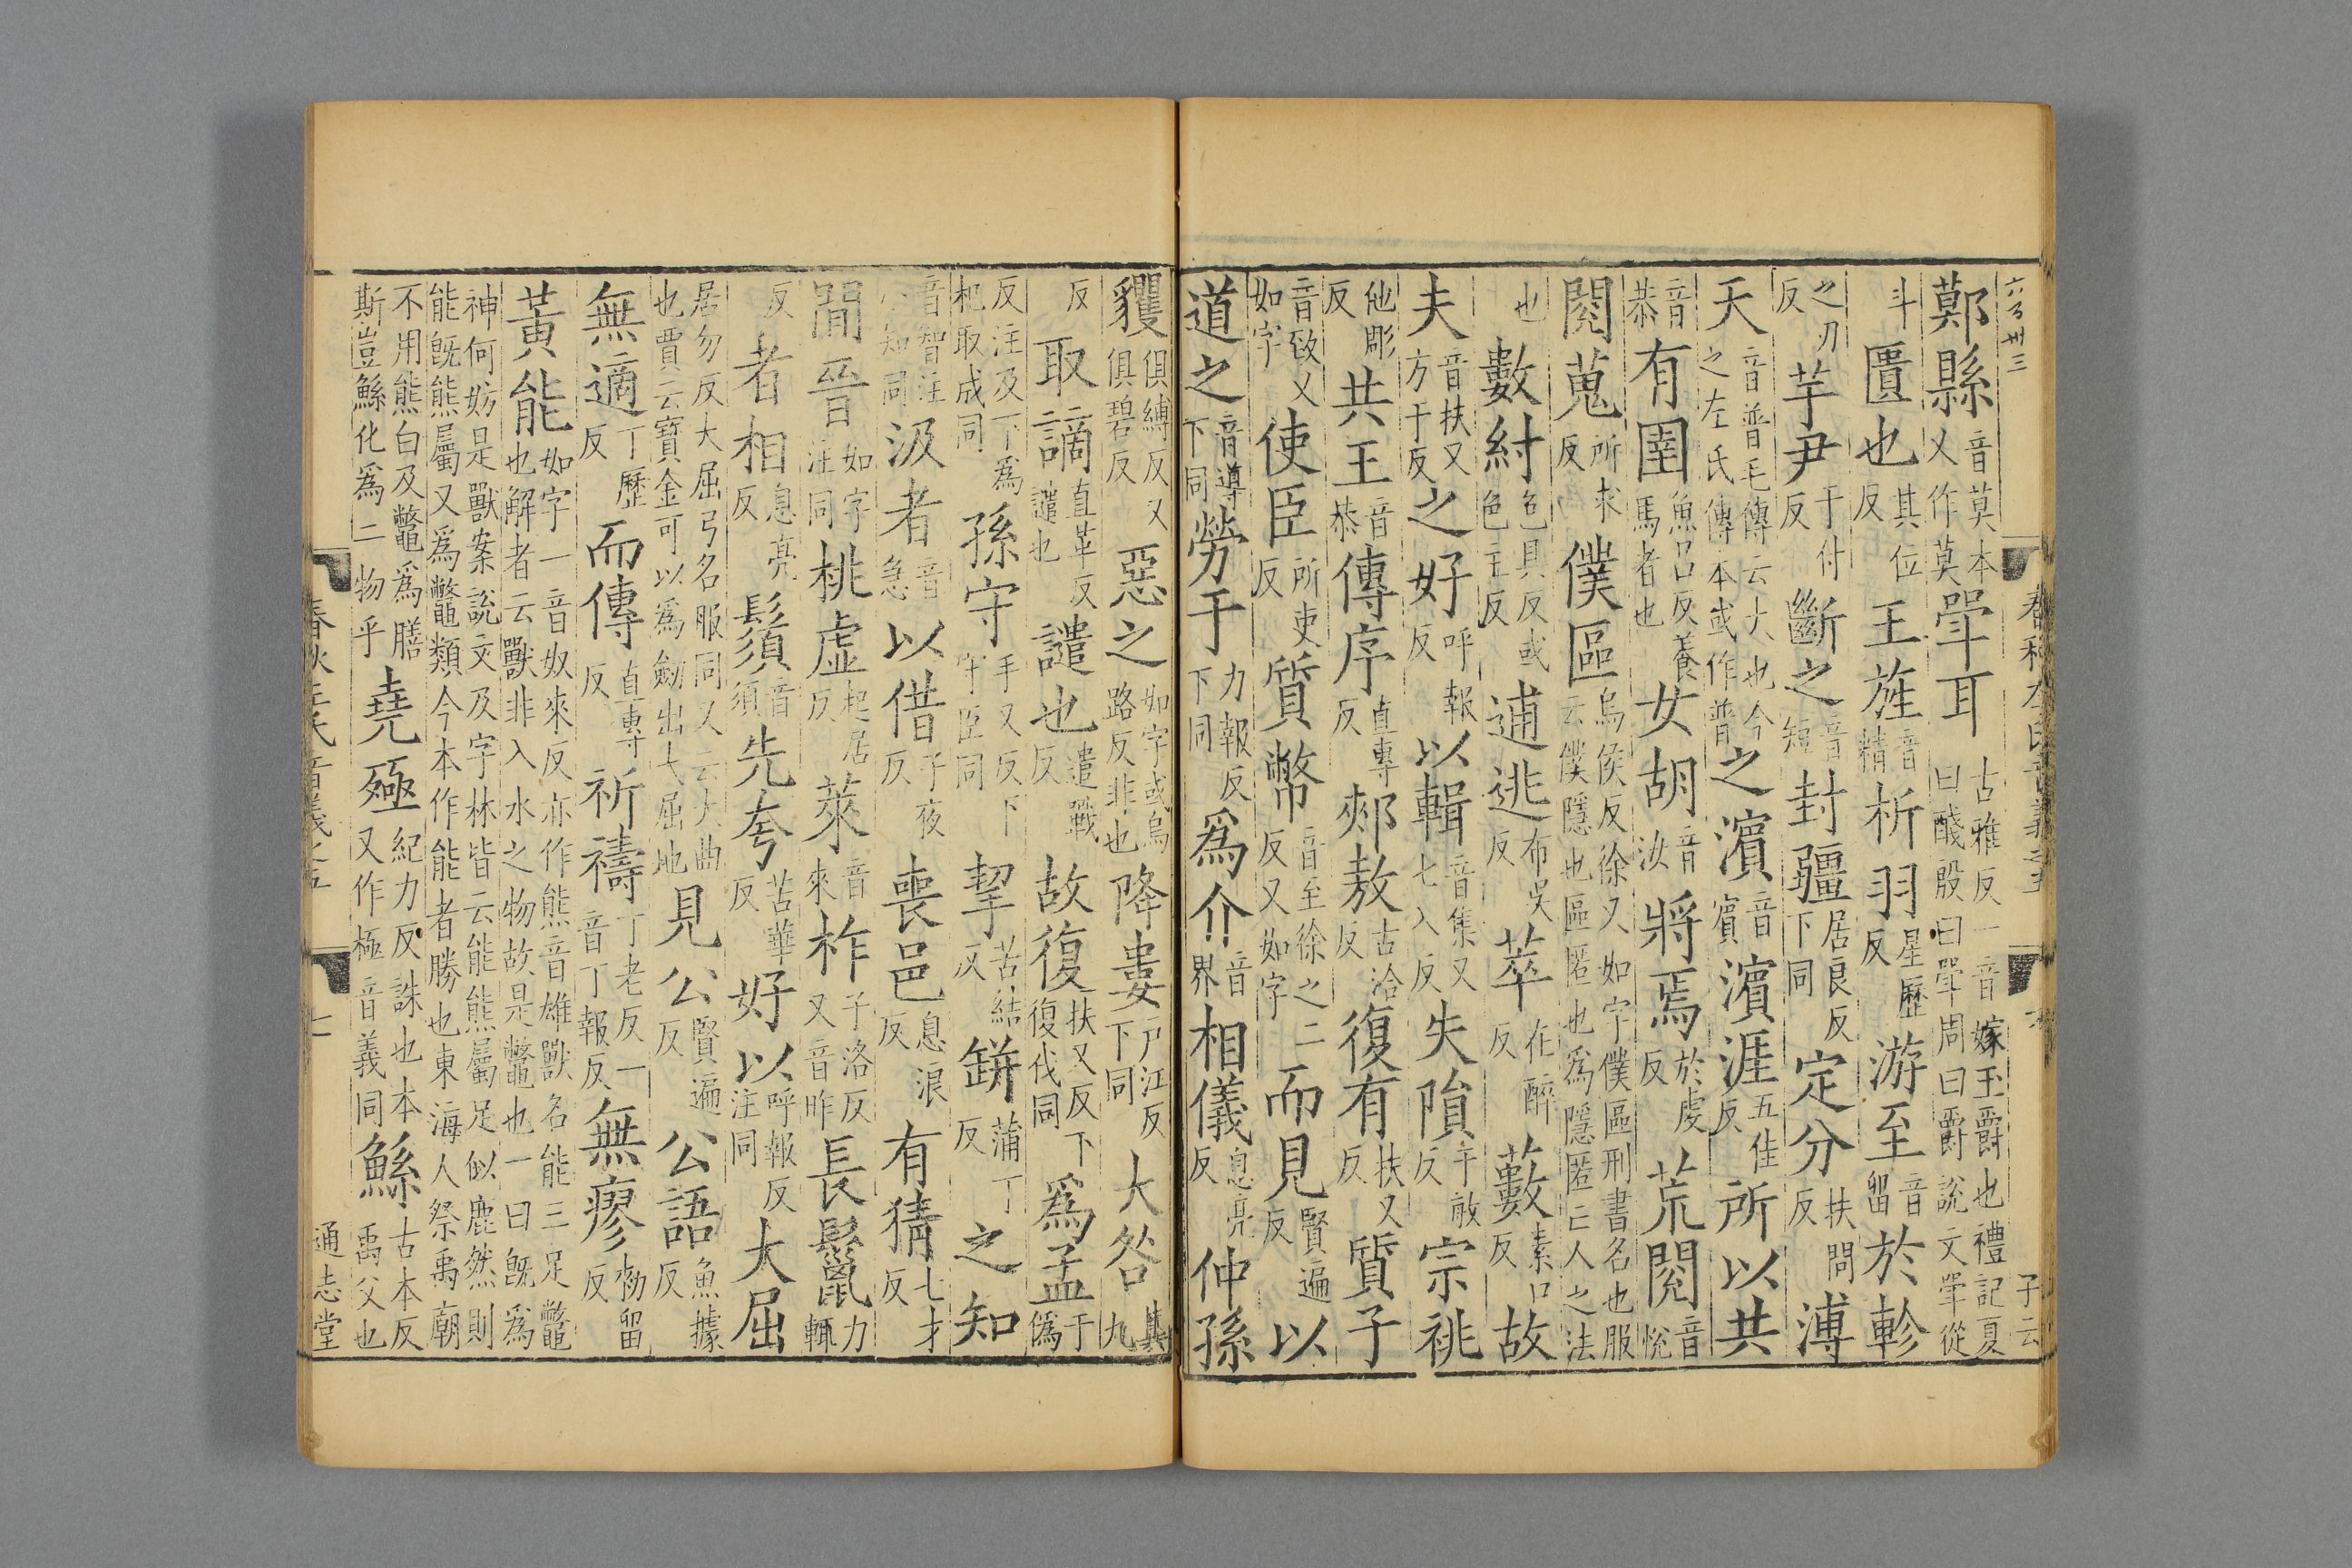 六百卅三
春秋左氏音義之五
六
子云
鄚縣音莫本又作莫斝耳古雅反一音嫁玉爵也禮記夏曰醆殷曰斝周曰爵說文斝從
斗匱也其位反王旌音精析羽星歷反游至音留於軫
之刃反芋尹于付反斷之音短封疆居良反下同定分扶問反溥
天音普毛傳云大也今之左氏傳本或作普之濱音賓濱涯五佳反所以共
音恭有圉魚呂反養馬者也女胡音汝將焉於虔反荒閱音悅
閱蒐所求反僕區烏侯反徐又如字僕區刑書名也服云僕隱也區匿也爲隱匿亡人之法
也數紂色具反或色主反逋逃布吳反萃在醉反藪素口反故
夫音扶又方于反之好呼報反以輯音集又七入反失隕于敏反宗祧
他彫反共王音恭傳序直專反郟敖古洽反復有扶又反質子
音致又如字使臣所吏反質幣音至徐之二反又如字而見賢遍反以
道之音導下同勞于力報反下同爲介音界相儀息亮反仲孫
貜俱縛反又俱碧反惡之如字或烏路反非也降婁戶江反下同大咎其九
反取謫直革反譴也譴也遣戰反故復扶又反下復伐同爲孟于僞
反注及下爲杞取成同孫守手又反下守臣同挈苦結反缾蒲丁反之知
音智注同汲者音急以借子夜反喪邑息浪反有猜七才反
間晉如字注同桃虛起居反萊音來柞子洛反又音昨長鬣力輒
反者相息亮反鬚音須先夸苦華反好以呼報反注同大屈
居勿反大屈弓名服同又云大曲也賈云寶金可以爲劒出大屈地見公賢遍反公語魚據反
無適丁歷反而傳直專反祈禱丁老反一音丁報反無瘳勑留反
黃能如字一音奴來反亦作熊音雄獸名能三足鼈也解者云獸非入水之物故是鼈也一曰旣爲
神何妨是獸案說文及字林皆云能熊屬足似鹿然則能旣熊屬又爲鼈類今本作能者勝也東海人祭禹廟
不用熊白及鼈爲膳斯豈鯀化爲二物乎堯殛紀力反誅也本又作極音義同鯀古本反禹父也
春秋左氏音義之五
七
通志堂